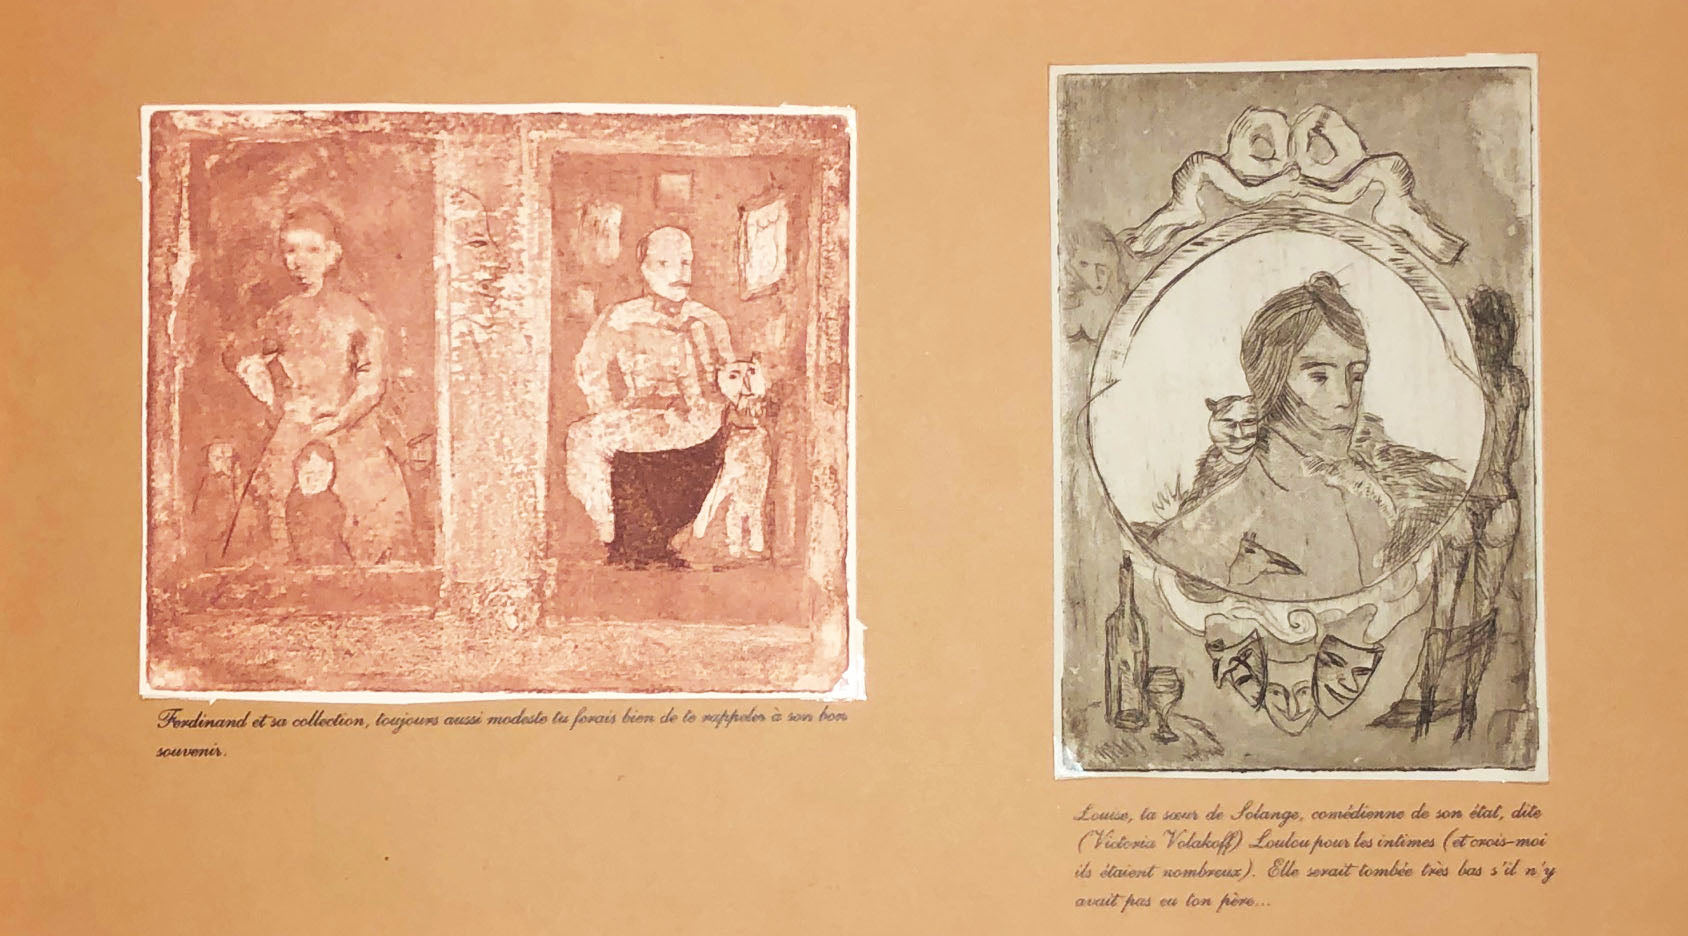 Ferdinand et sa collection, toujours aussi modeste tu ferais bien de te rappeler à son bon
souvenir.
Louise, la sœur de Solange, comédienne de son état, dite
(Victoria Volakoff) Loulou pour les intimes (et crois-moi
ils étaient nombreux). Elle serait tombée très bas s'il n'y
avait pas eu ton père...